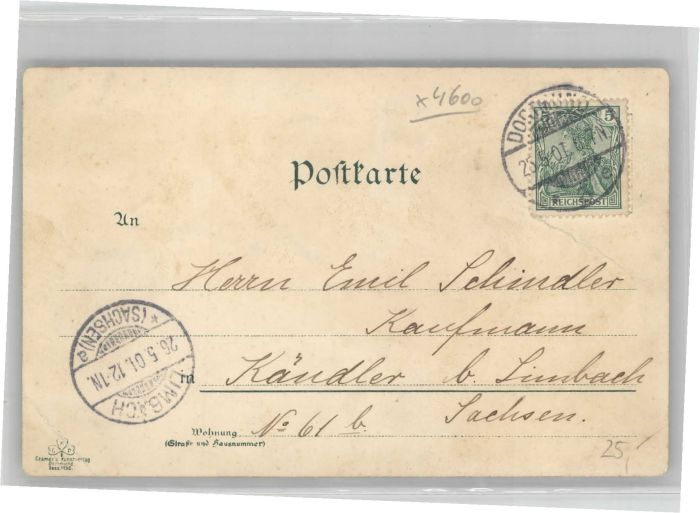 x4600
5
REICHSPOST
Postkarte
An
Herrn Emil Schindler
Kaufmann
in Kändler b. Limbach
Sachsen.
Wohnung
(Straße und Hausnummer)
No 61 b.
LIMBACH
* (SACHSEN) e
26.5.01.12-1N
Cramers Kunstverlag
Dortmund
25,-